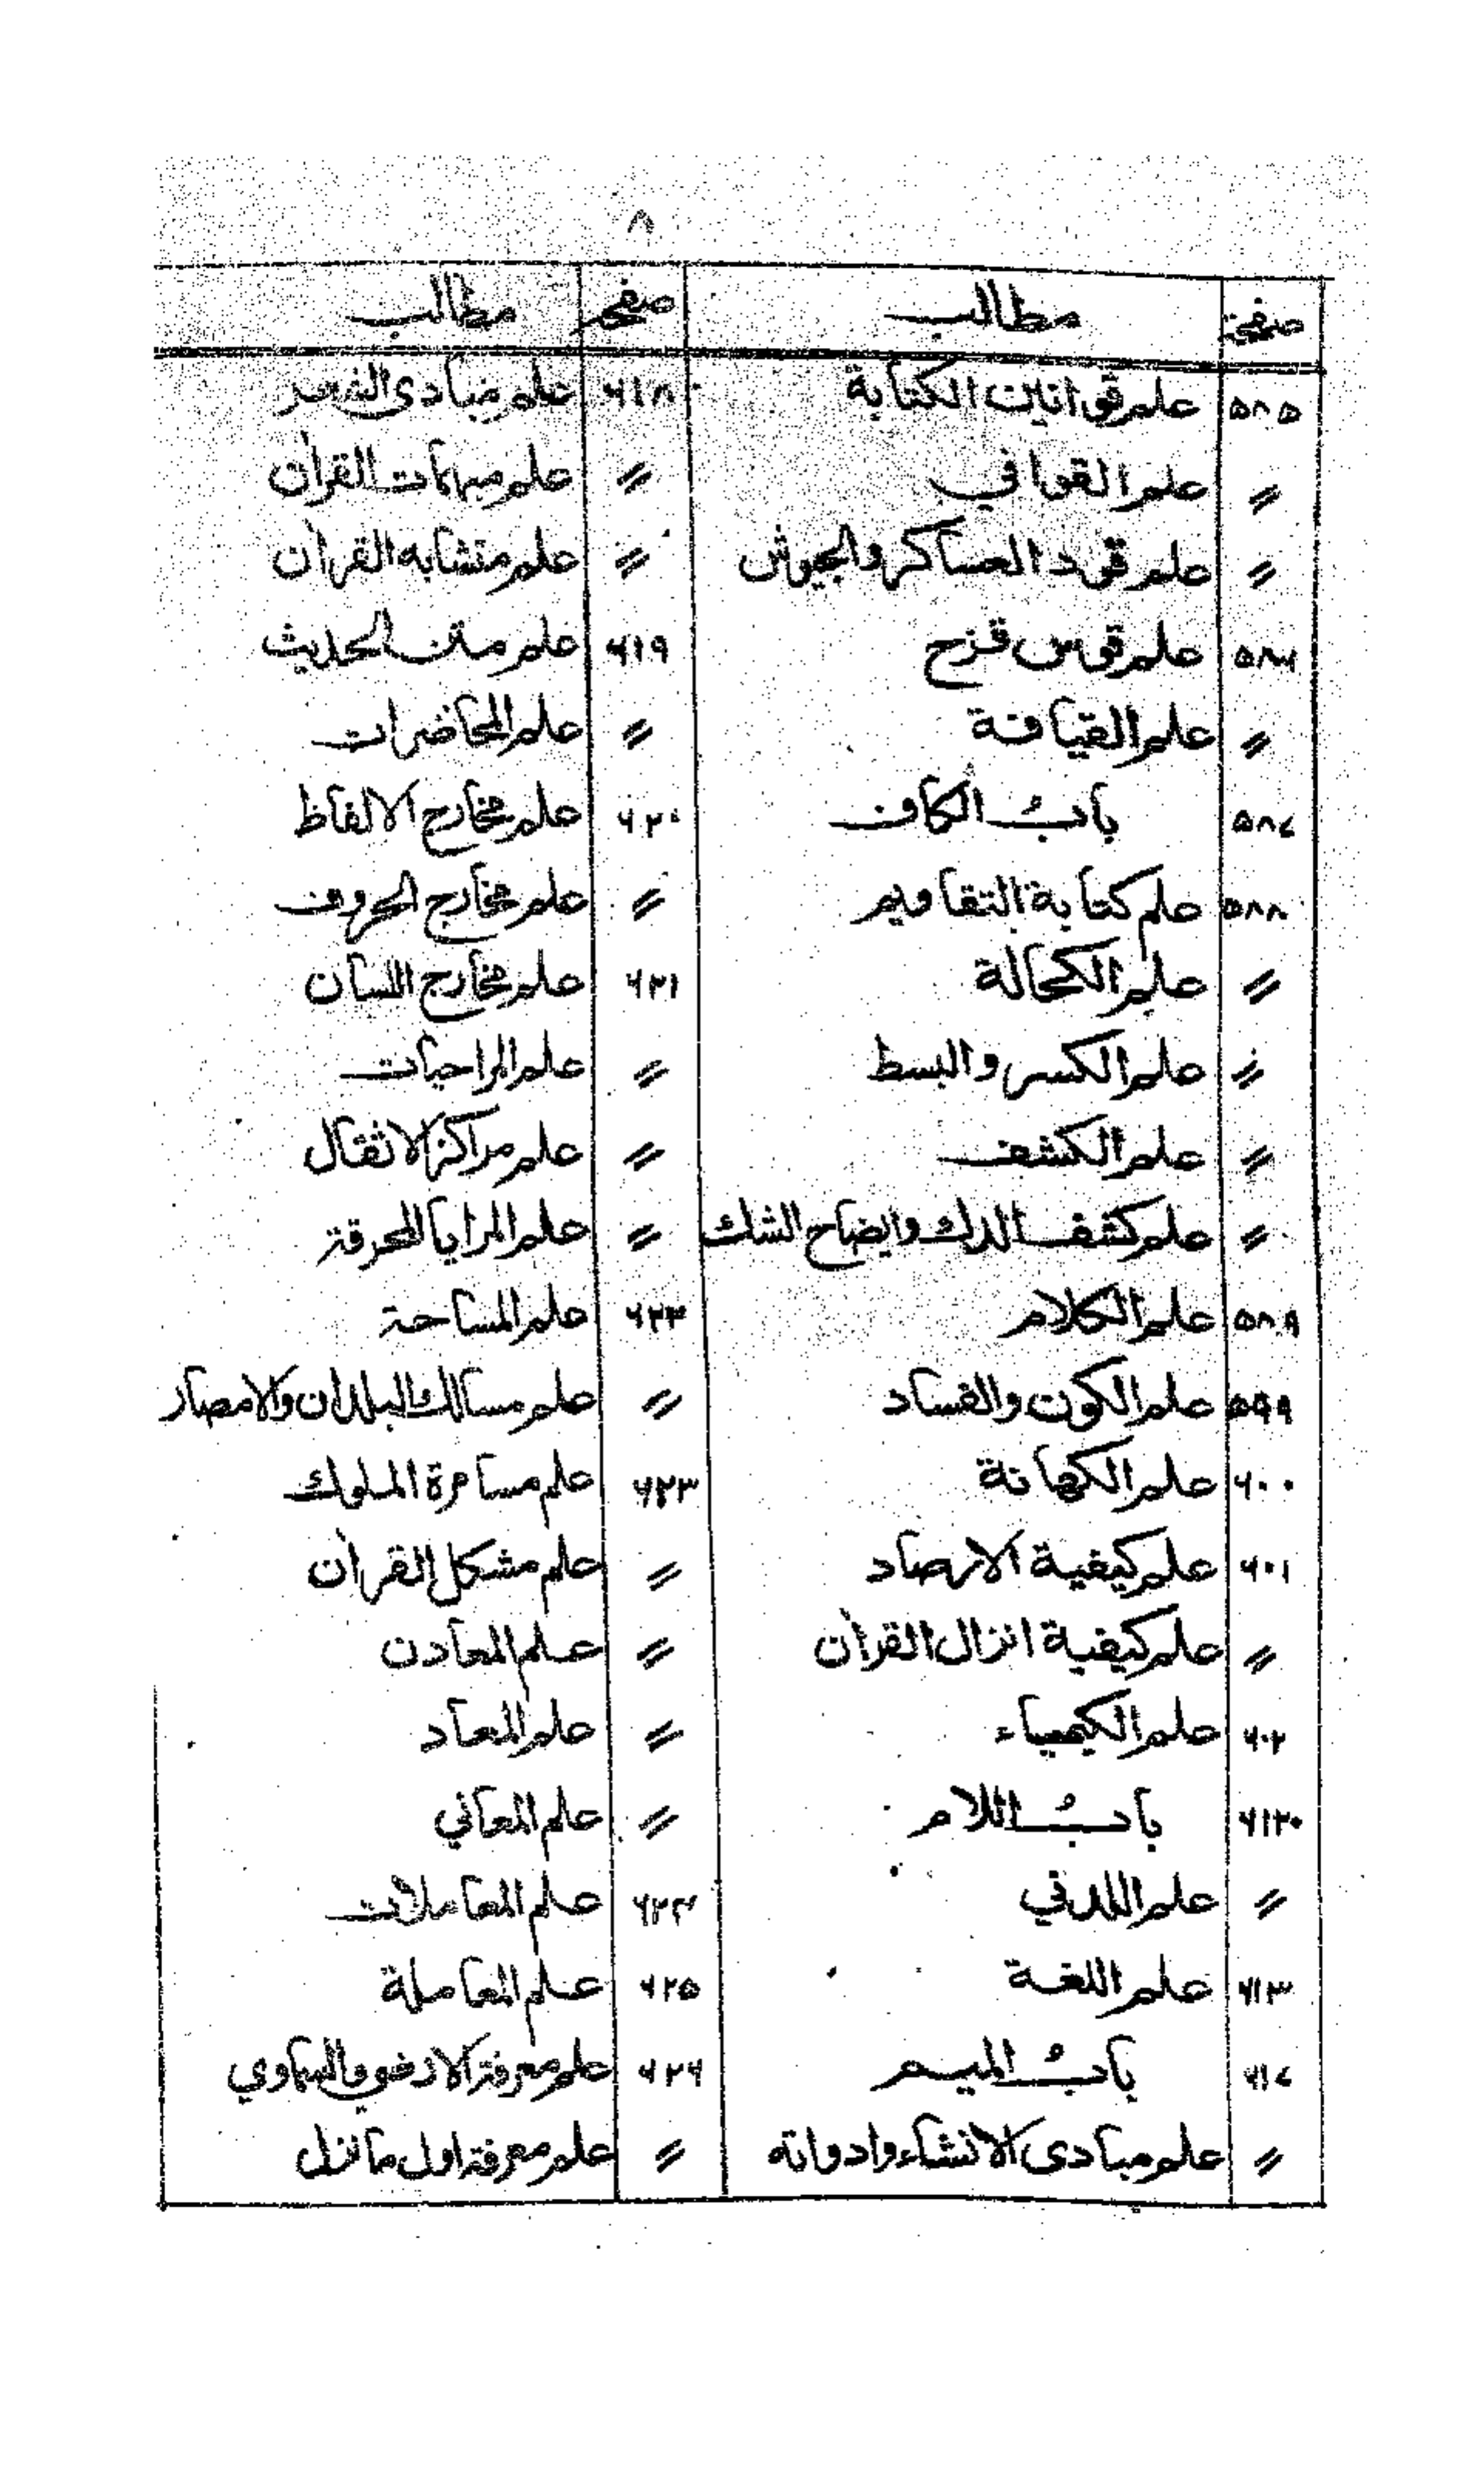 ۸
صفحة مطالب صفحه مطالب
۵۸۵ علم قوانين الكتابة ۶۱۸ علم مبادى الشعر
〃 علم القوافي 〃 علم مبهمات القرآن
〃 علم قود العساكر والجيوش 〃 علم متشابه القرآن
۵۸۶ علم قوس قزح ۶۱۹ علم متن الحديث
〃 علم القيافة 〃 علم المحاضرات
۵۸۷ بابُ الكاف ۶۲۰ علم مخارج الالفاظ
۵۸۸ علم كتابة التقاويم 〃 علم مخارج الحروف
〃 علم الكحالة ۶۲۱ علم مخارج اللسان
〃 علم الكسر والبسط 〃 علم المراحيات
〃 علم الكشف 〃 علم مراكز الاثقال
〃 علم كشف الدك وايضاح الشك 〃 علم المرايا المحرقة
۵۸۹ علم الكلام ۶۲۲ علم المساحة
۵۹۹ علم الكون والفساد 〃 علم مسالك البلدان والامصار
۶۰۰ علم الكهانة ۶۲۳ علم مسامرة الملوك
۶۰۱ علم كيفية الارصاد 〃 علم مشكل القرآن
〃 علم كيفية انزال القرآن 〃 علم المعادن
۶۰۲ علم الكيمياء 〃 علم المعاد
۶۱۲ بابُ اللام 〃 علم المعاني
〃 علم اللدني ۶۲۴ علم المعاملات
۶۱۳ علم اللغة ۶۲۵ علم المعاملة
۶۱۷ بابُ الميم ۶۲۶ علم معرفة الارضي والسماوي
〃 علم مبادى الانشاء وادواته 〃 علم معرفة اول ما نزل